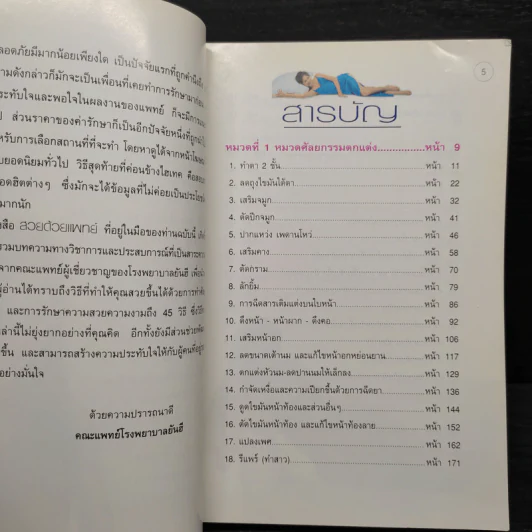 ลอดภัยมีมากน้อยเพียงใด เป็นปัจจัยแรกที่ถูกคำนึงถึง
ามดังกล่าวก็มักจะเป็นเพื่อนที่เคยทำการรักษามาก่อน
ระทับใจและพอใจในผลงานของแพทย์ ก็จะมีการแนะ
ป ส่วนราคาของค่ารักษาก็เป็นอีกปัจจัยหนึ่งที่ถูกนำ
หรับการเลือกสถานที่ที่จะทำ โดยหาดูได้จากหน้าโฆษณา
บยอดนิยมทั่วไป วิธีสุดท้ายที่ค่อนข้างไฮเทค คือ
อดฮิตต่างๆ ซึ่งมักจะได้ข้อมูลที่ไม่ค่อยเป็นประโยชน์
มากนัก
งสือ สวยด้วยแพทย์ ที่อยู่ในมือของท่านฉบับนี้
รวมบทความทางวิชาการและประสบการณ์ที่เป็นสาระ
จากคณะแพทย์ผู้เชี่ยวชาญของโรงพยาบาลยันฮี เพื่อ
ผู้อ่านได้ทราบถึงวิธีที่ทำให้คุณสวยขึ้นได้ด้วยการทำ
และการรักษาความสวยความงามถึง 45 วิธี ซึ่งวิธี
ล่านี้ไม่ยุ่งยากอย่างที่คุณคิด อีกทั้งยังมีส่วนช่วย
ขึ้น และสามารถสร้างความประทับใจให้กับผู้คนที่อยู่
อย่างมั่นใจ
ด้วยความปรารถนาดี
คณะแพทย์โรงพยาบาลยันฮี
5
สารบัญ
หมวดที่ 1 หมวดศัลยกรรมตกแต่ง................หน้า 9
1. ทำตา 2 ชั้น................หน้า 11
2. ลดถุงไขมันใต้ตา................หน้า 22
3. เสริมจมูก................หน้า 32
4. ตัดปีกจมูก................หน้า 41
5. ปากแหว่ง เพดานโหว่................หน้า 46
6. เสริมคาง................หน้า 58
7. ตัดกราม................หน้า 70
8. ลักยิ้ม................หน้า 79
9. การฉีดสารเติมแต่งบนใบหน้า................หน้า 86
10. ดึงหน้า - หน้าผาก - ดึงคอ................หน้า 92
11. เสริมหน้าอก................หน้า 106
12. ลดขนาดเต้านม และแก้ไขหน้าอกหย่อนยาน................หน้า 117
13. ตกแต่งหัวนม-ลดปานนมให้เล็กลง................หน้า 129
14. กำจัดเหงื่อและความเปียกชื้นด้วยการฉีดยา................หน้า 136
15. ดูดไขมันหน้าท้องและส่วนอื่นๆ................หน้า 144
16. ตัดไขมันหน้าท้อง และแก้ไขหน้าท้องลาย................หน้า 152
17. แปลงเพศ................หน้า 162
18. รีแพร์ (ทำสาว)................หน้า 171